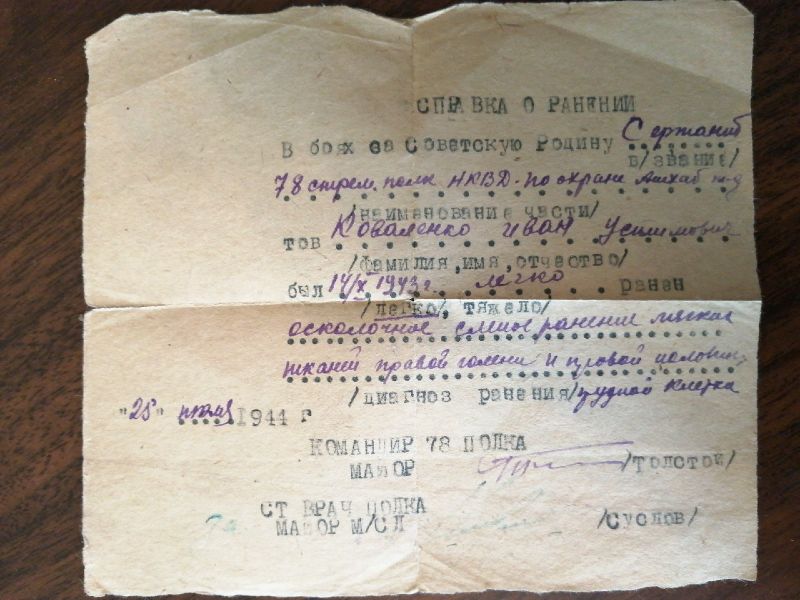 СПРАВКА О РАНЕНИИ
В боях за Советскую Родину Сержант
в/звание/
78 стрел. полк НКВД по охране
/наименование части/
тов Коваленко Иван
/Фамилия, имя, отчество/
был 14/X 1943 г. легко ранен
/легко, тяжело/
осколочное слепое ранение мягких
тканей правой голени и правой половины
/диагноз ранения/ грудной клетки
"25" 1944 г
КОМАНДИР 78 ПОЛКА
МАЙОР /Толстой/
СТ ВРАЧ ПОЛКА
МАЙОР М/СЛ /Суслов/